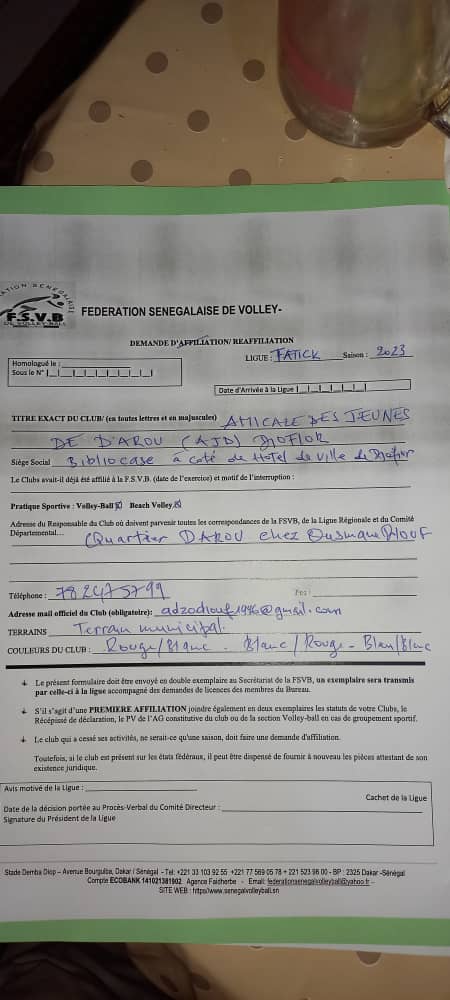 F.S.V.B
FEDERATION SENEGALAISE DE VOLLEY-
DEMANDE D'AFFILIATION/ REAFFILIATION
LIGUE : FATICK Saison : 2023
Homologué le :
Sous le N°
Date d'Arrivée à la Ligue
TITRE EXACT DU CLUB/ (en toutes lettres et en majuscules) AMICALE DES JEUNES
DE D'AROU (AJD) DJOFIOR
Siège Social Bibliocase à coté de Hotel de ville de Djofior
Le Clubs avait-il déjà été affilié à la F.S.V.B. (date de l'exercice) et motif de l'interruption :
Pratique Sportive : Volley-Ball Beach Volley
Adresse du Responsable du Club où doivent parvenir toutes les correspondances de la FSVB, de la Ligue Régionale et du Comité
Départemental… (Quartier DAROU chez Ousmane DIOUF
Téléphone : 78 247 57 99 Fax :
Adresse mail officiel du Club (obligatoire): adzodiouf1996@gmail.com
TERRAINS Terrain municipal.
COULEURS DU CLUB : Rouge/Blanc - Blanc/Rouge - Blan/Blanc
Le présent formulaire doit être envoyé en double exemplaire au Secrétariat de la FSVB, un exemplaire sera transmis
par celle-ci à la ligue accompagné des demandes de licences des membres du Bureau.
S'il s'agit d'une PREMIERE AFFILIATION joindre également en deux exemplaires les statuts de votre Clubs, le
Récépissé de déclaration, le PV de l'AG constitutive du club ou de la section Volley-ball en cas de groupement sportif.
Le club qui a cessé ses activités, ne serait-ce qu'une saison, doit faire une demande d'affiliation.
Toutefois, si le club est présent sur les états fédéraux, il peut être dispensé de fournir à nouveau les pièces attestant de son
existence juridique.
Avis motivé de la Ligue :
Cachet de la Ligue
Date de la décision portée au Procès-Verbal du Comité Directeur :
Signature du Président de la Ligue
Stade Demba Diop – Avenue Bourguiba, Dakar / Sénégal - Tel: +221 33 103 92 55 +221 77 569 05 78 + 221 523 96 00 - BP : 2325 Dakar -Sénégal
Compte ECOBANK 141021381902 Agence Faidherbe - Email: federationsenegalvolleyball@yahoo.fr -
SITE WEB : https//www.senegalvolleyball.sn